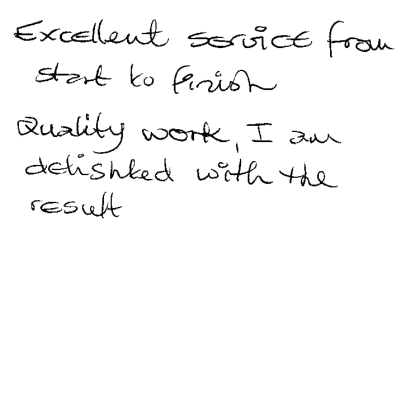 Excellent service from
start to finish
Quality work, I am
delighted with the
result